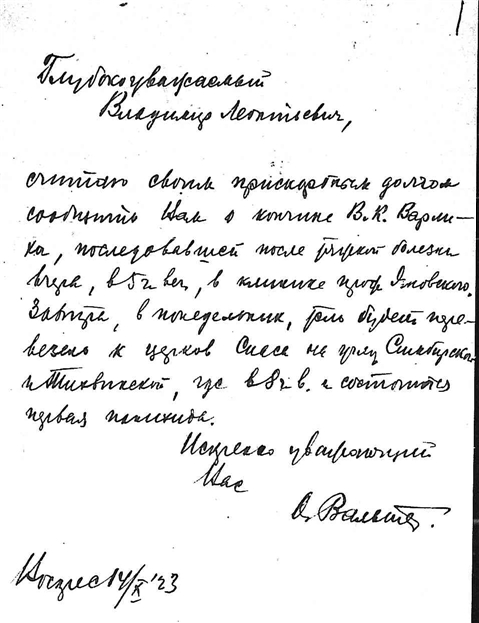 1
Глубокоуважаемый
Владимир Леонтьевич,
считаю своим прискорбным долгом
сообщить Вам о кончине В. К. Варли-
ха, последовавшей после тяжкой болезни
вчера, в 5 ч. веч., в клинике проф. Яновского.
Завтра, в понедельник, тело будет пере-
везено к церков Спаса на углу Симбирской
и Тихвинской, где в 8 ч. в. и состоится
первая панихида.
Искренно уважающий
Вас
О. Вальтер.
Воскрес 14/X '23